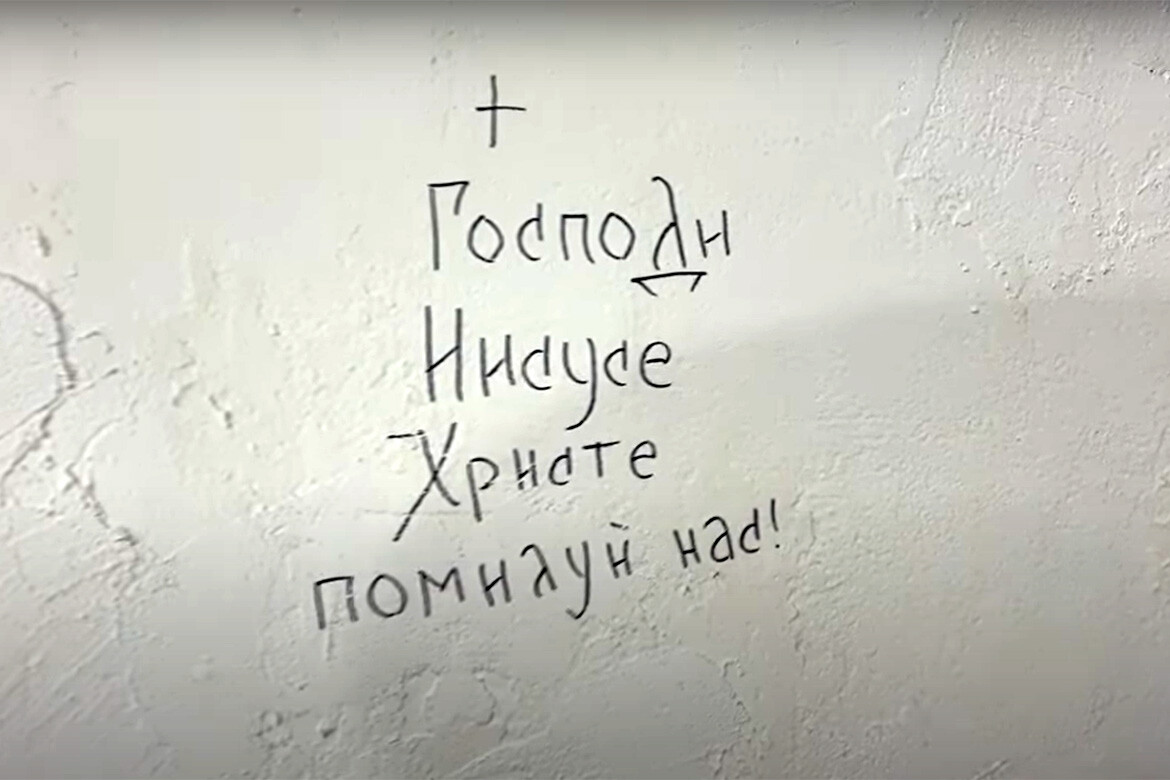 +
Господи
Иисусе
Христе
помилуй нас!